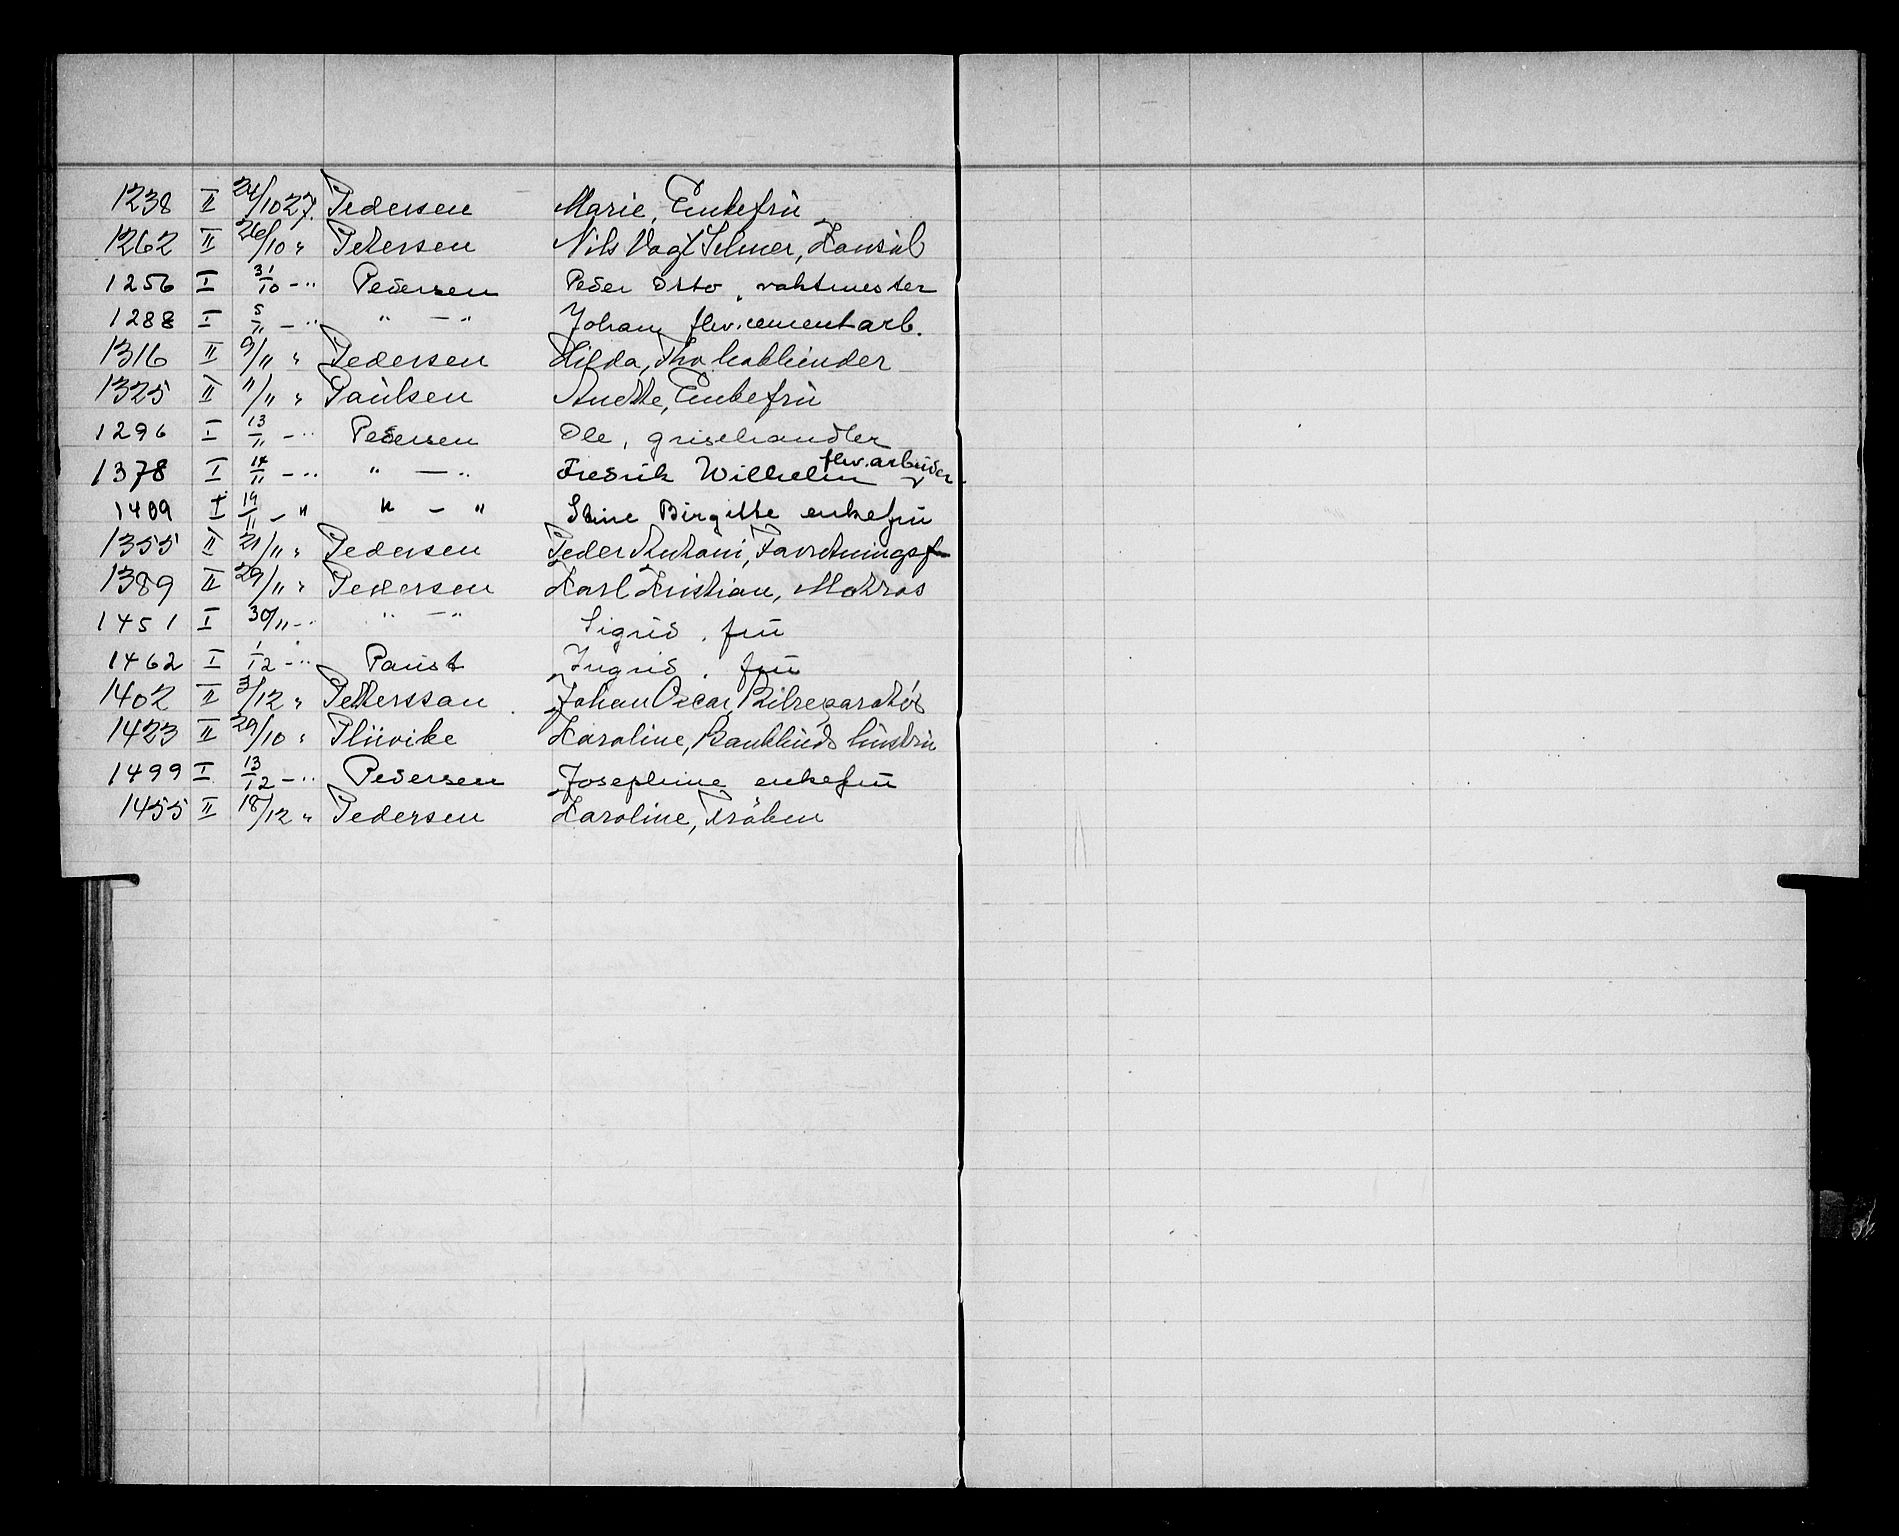 1238 II 24/10 27. Pedersen Marie, Enkefrü
1262 II 26/10 " Petersen Nils Vogt Selmer, Konsül
1256 I 31/10 - " Pedersen Peder Otto, vaktmester
1288 I 5/11 - " " - " Johan, fhv. cementarb.
1316 II 9/11 " Pedersen Hilda,
1325 II 11/11 " Paülsen Anette, Enkefrü
1296 I 13/11 - " Pedersen Ole, grisehandler
1378 I 14/11 - " " - " Fredrik Wilhelm fhv. arbeider
1409 I 19/11 - " " - " Stine Birgitte enkefrü
1355 II 21/11 " Pedersen Peder Antoni, Forretningsf
1389 II 29/11 " Pedersen Karl Kristian, Matros
1451 I 30/11 - " " - " Sigrid, frü
1462 I 1/12 - " Paust Ingrid, frü
1402 II 3/12 " Pettersson Johan Oscar, Bilreparatör
1423 II 29/10 " Plüvike Karoline, Bankbuds hüstrü
1499 I 13/12 - " Pedersen Josephine, enkefrü
1455 II 18/12 " Pedersen Karoline, Fröken